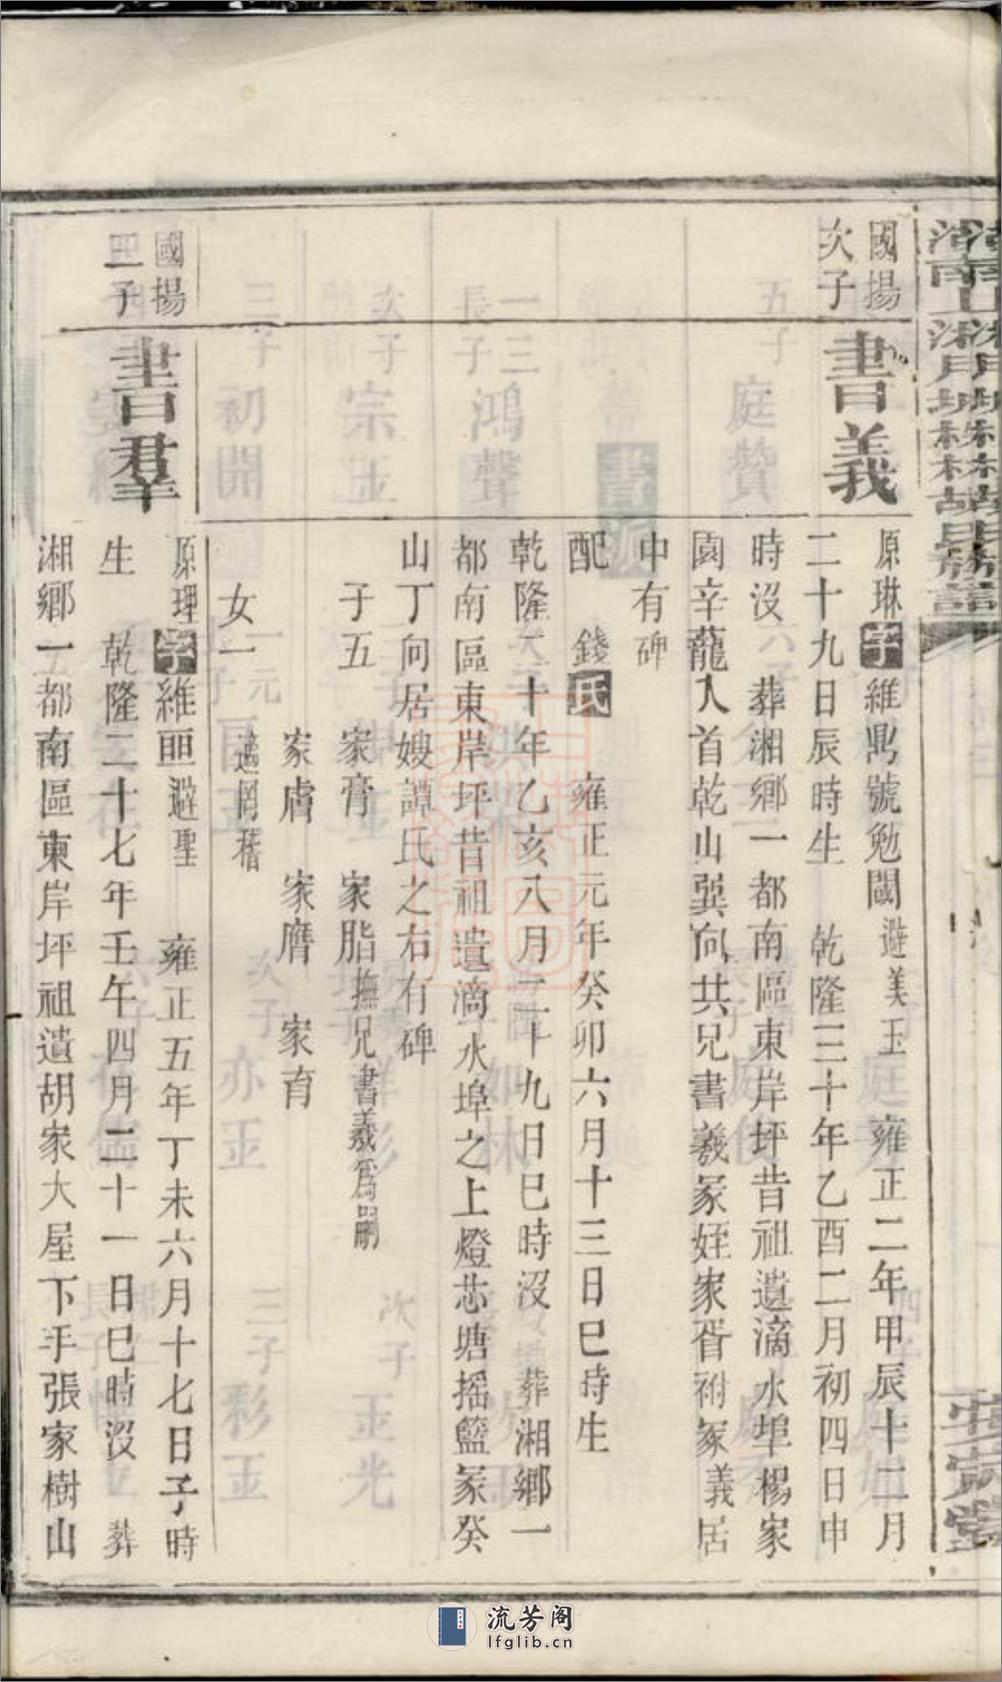 國揚
次子
書義
原琳字維鼎號勉閾避美玉 雍正二年甲辰十二月
二十九日辰時生 乾隆三十年乙酉二月初四日申
時沒 葬湘鄉一都南區東岸坪昔祖遺滴水埠楊家
園辛龍入首乾山巽向共兄書羲冢姪家胥祔冢義居
中有碑
配 錢氏 雍正元年癸卯六月十三日巳時生
乾隆二十年乙亥八月二十九日巳時沒 葬湘鄉一
都南區東岸坪昔祖遺滴水埠之上燈芯塘搖籃冢癸
山丁向居嫂譚氏之右有碑
子五 家膏 家脂撫兄書羲爲嗣
家膚 家膺 家育
女一 適周稽
國揚
三子
書羣
原理字維亜避聖 雍正五年丁未六月十七日子時
生 乾隆二十七年壬午四月二十一日巳時沒 葬
湘鄉一都南區東岸坪祖遺胡家大屋下手張家樹山
流芳阁
lfglib.cn